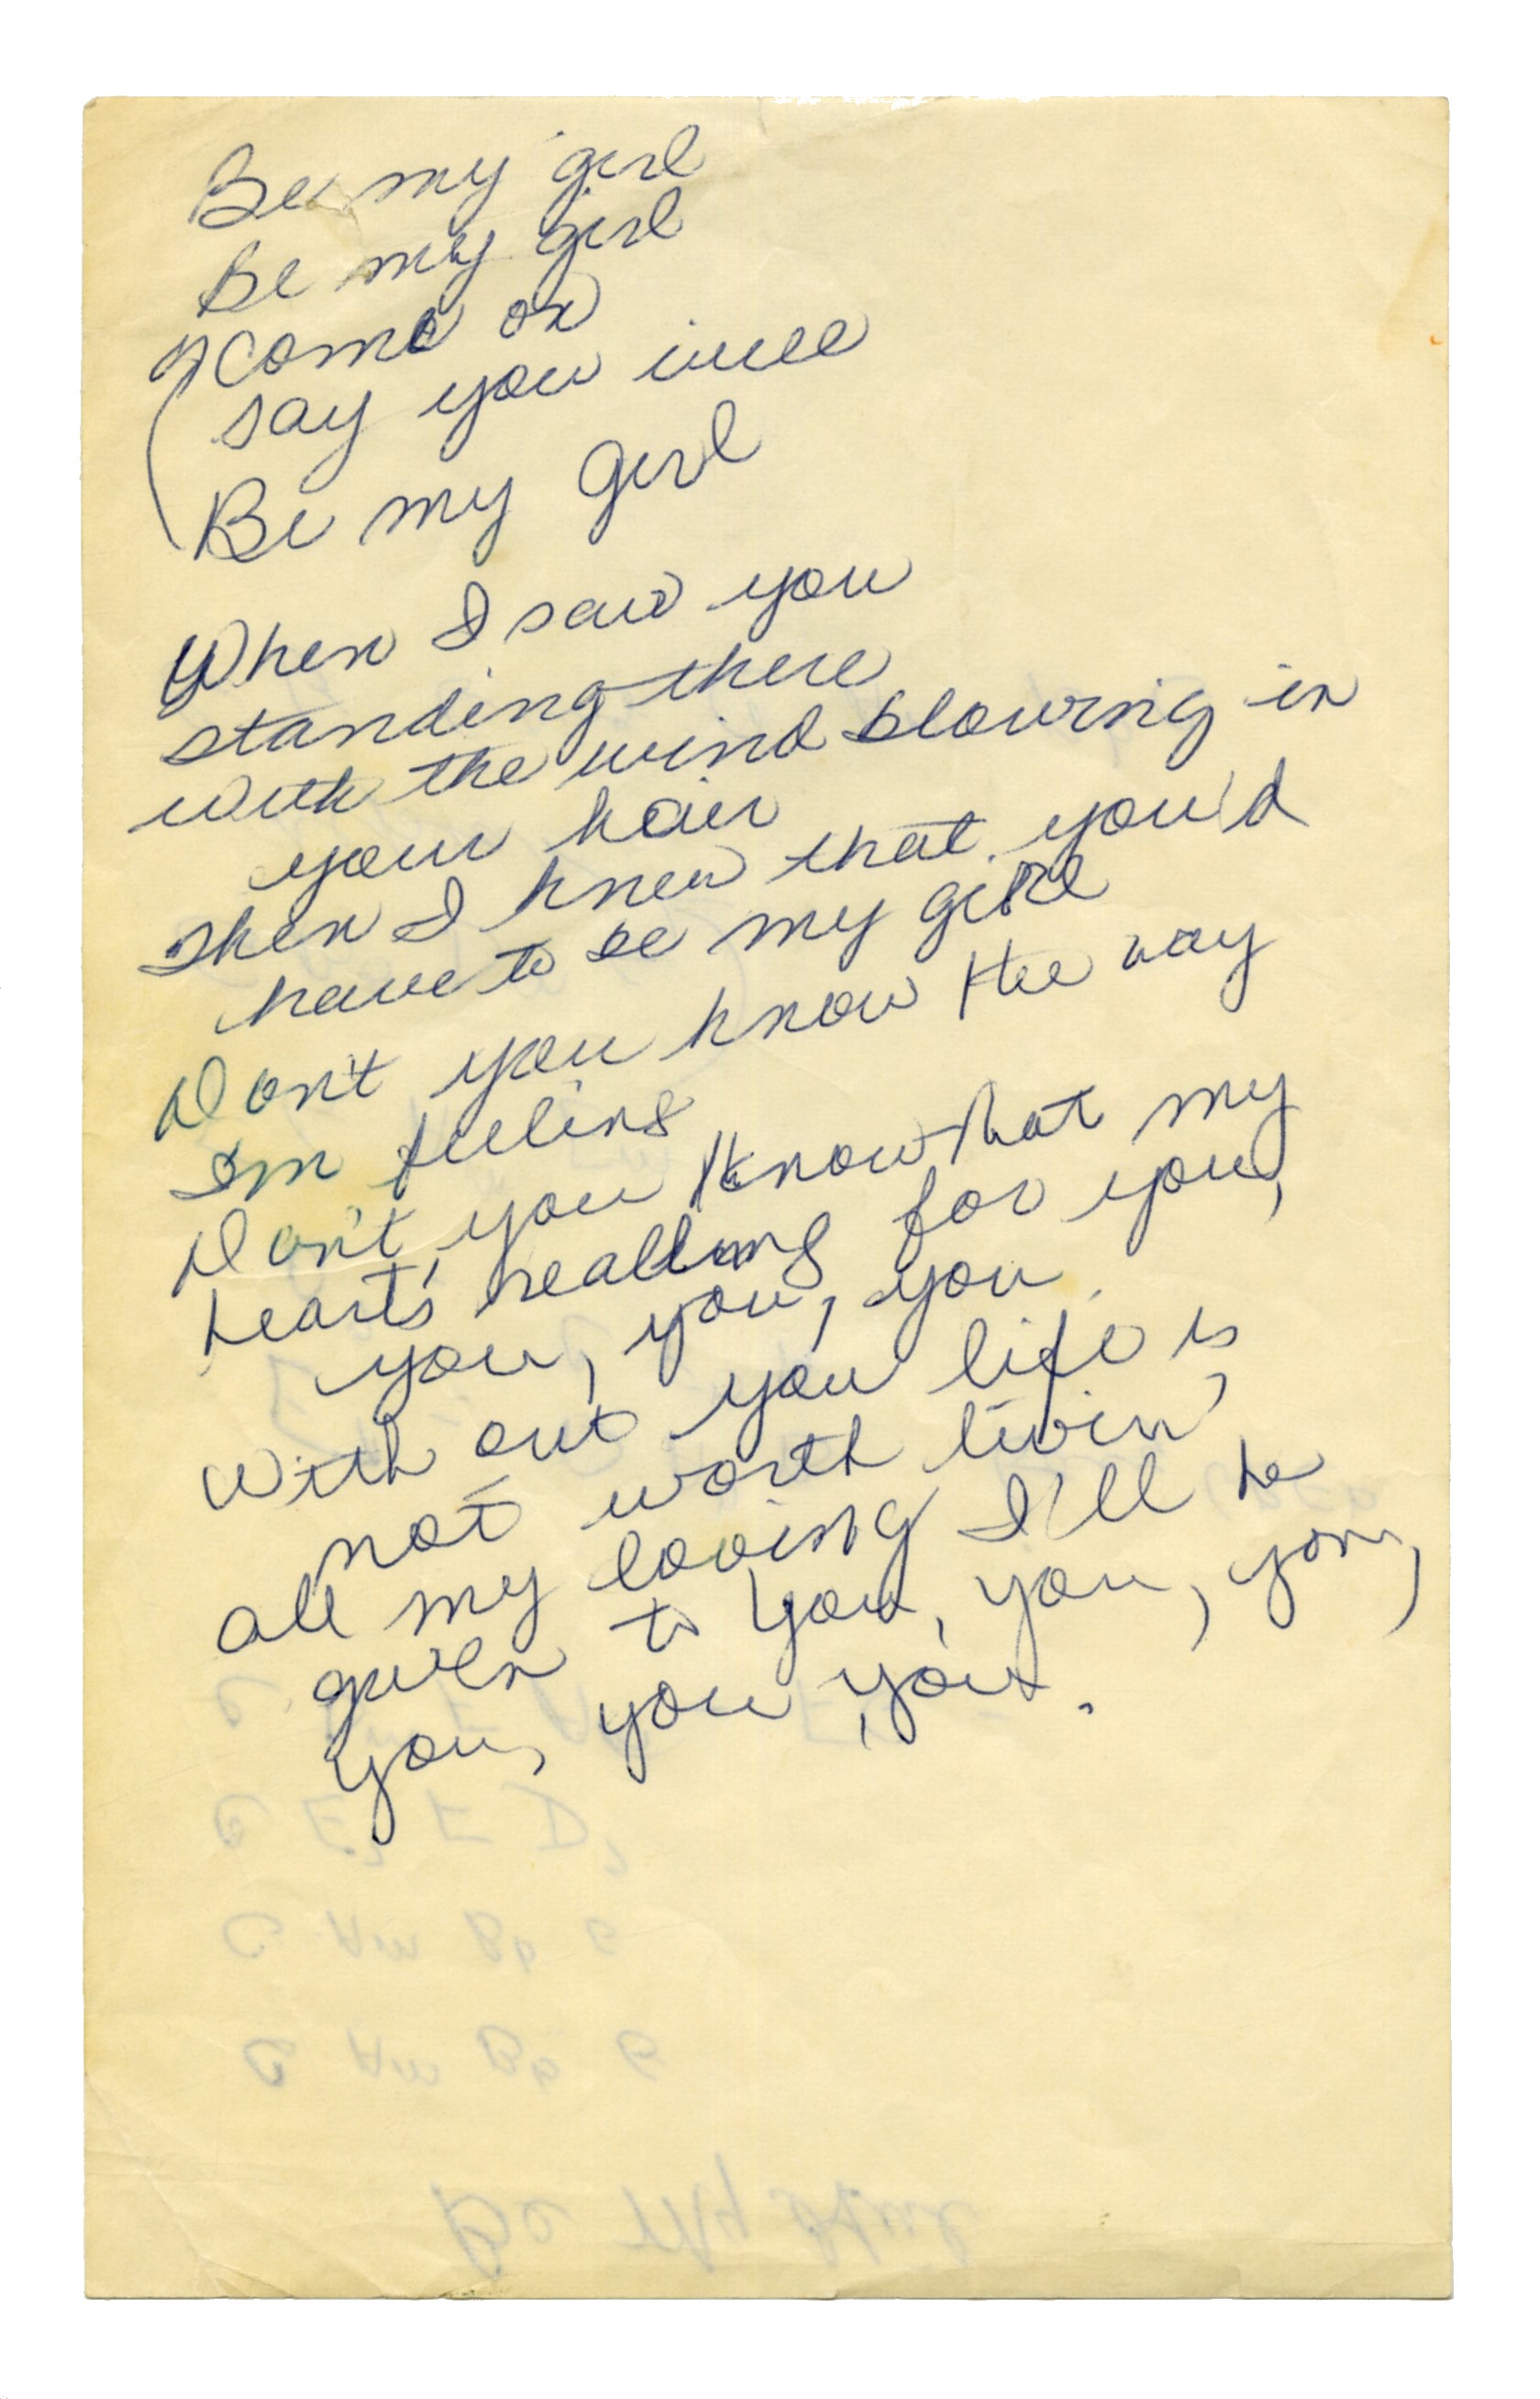 Be my girl
Be my girl
Come on
say you will
Be my girl
When I saw you
standing there
with the wind blowing in
your hair
Then I knew that you'd
have to be my girl
Don't you know the way
I'm feeling
Don't you know that my
hearts for you,
you, you, you
With out you life is
not worth livin'
all my loving I'll be
given to you, you, you,
you, you, you.
C Am
C Am
Be My Girl